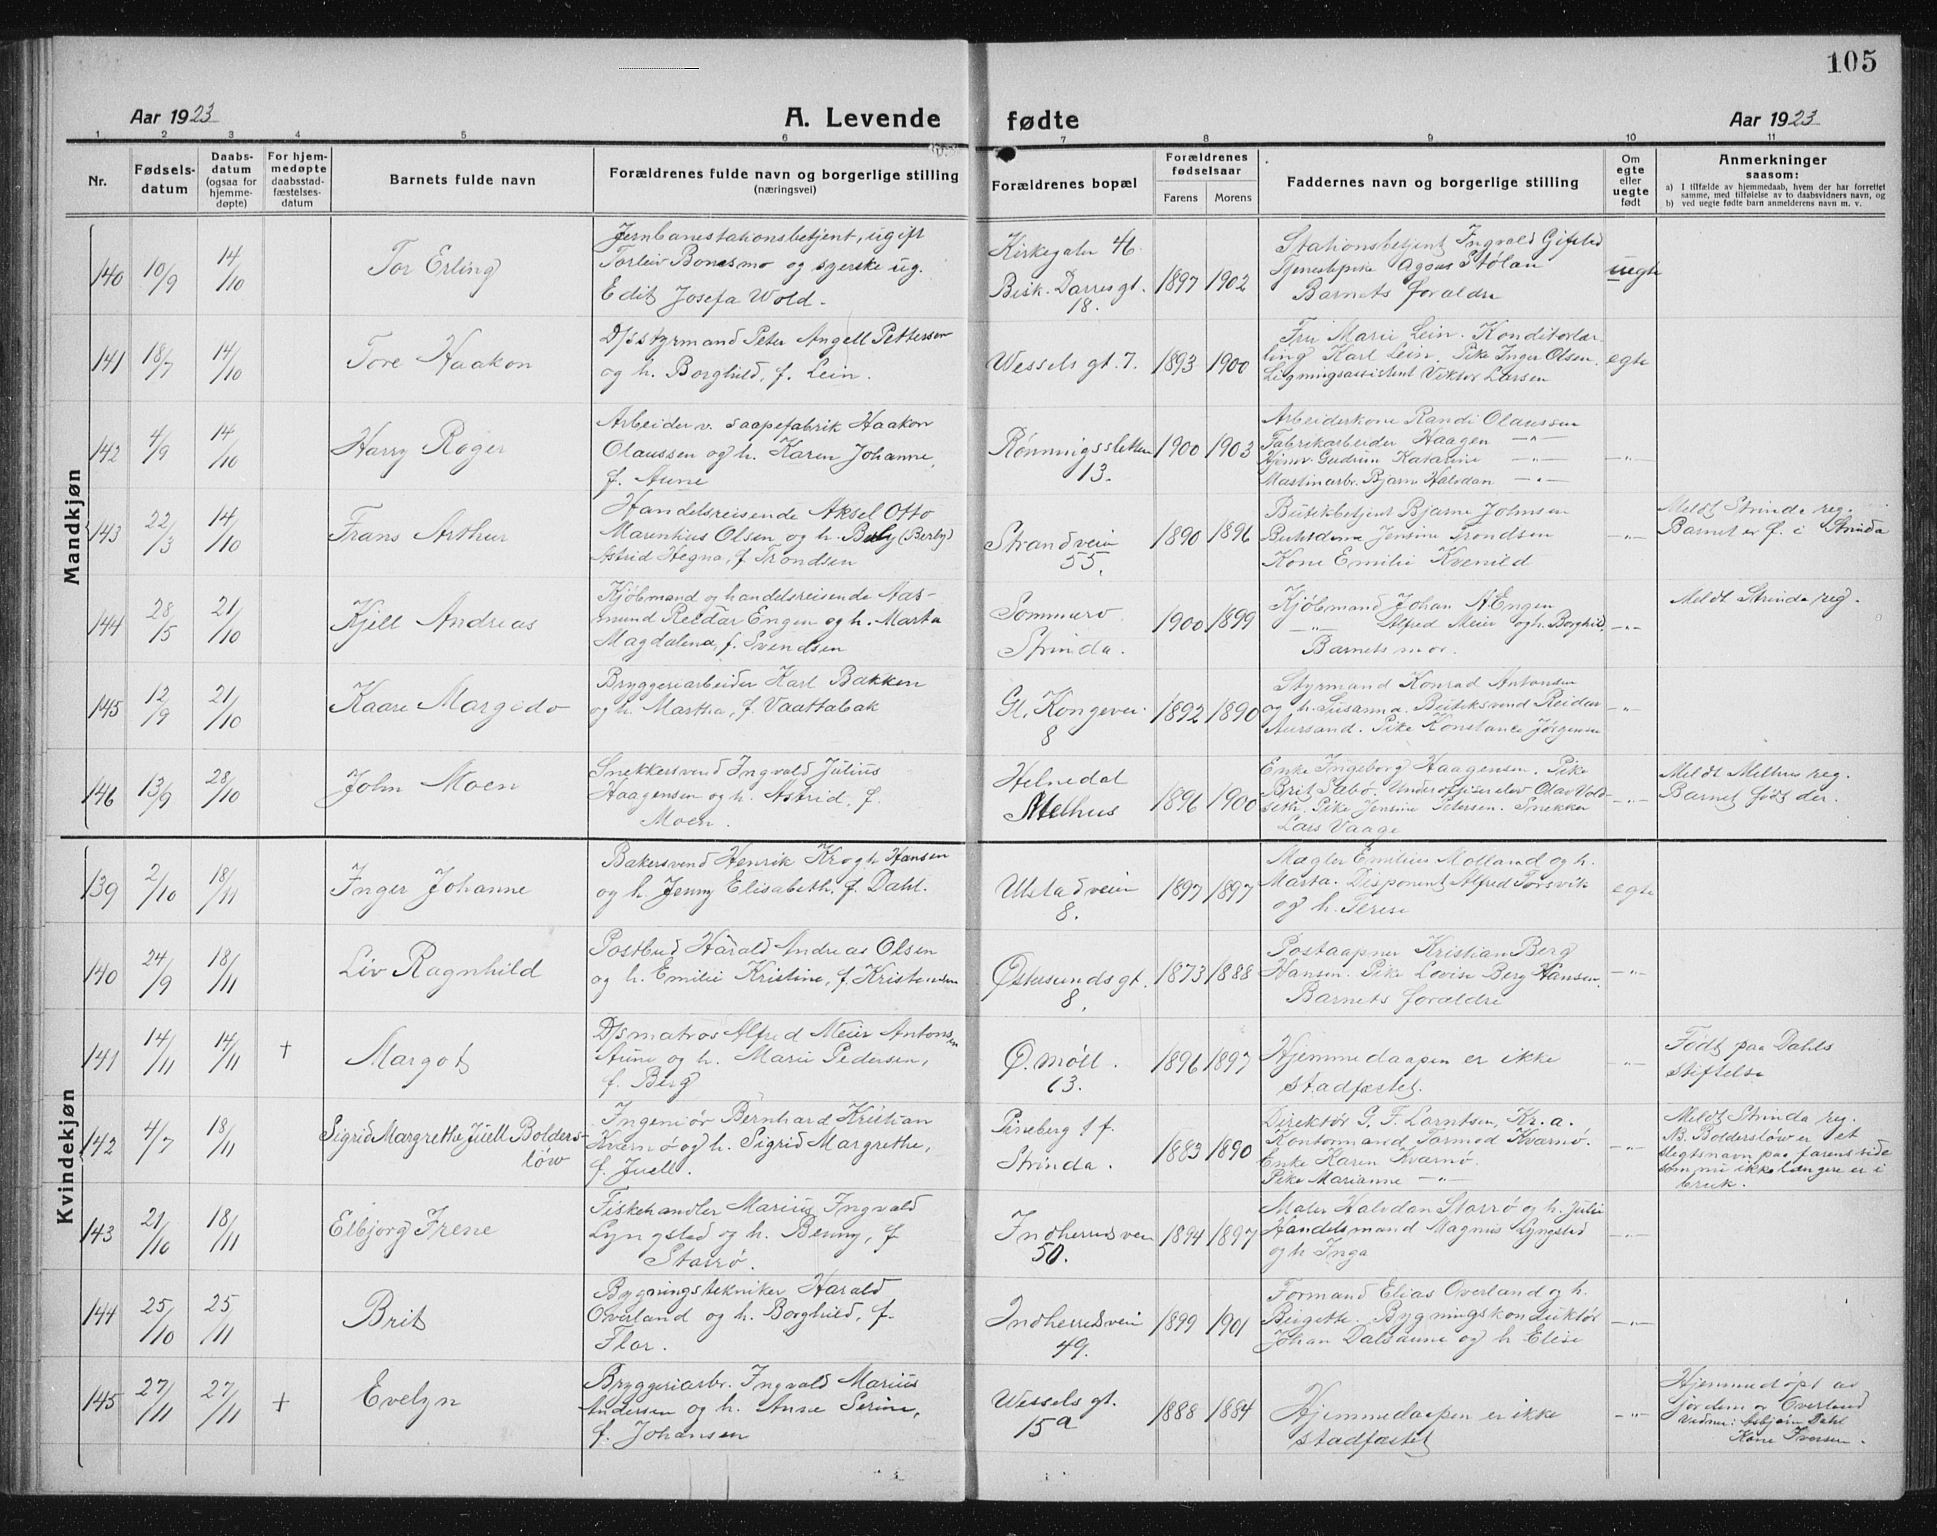 105
Aar 1923
A. Levende fødte
Aar 1923
1 2 3 4 5 6 7 8 9 10 11
Nr.
Fødsels-
datum
Daabs-
datum
(ogsaa for
hjemme-
døpte)
For hjem-
medøpte
daabsstad-
fæstelses-
datum
Barnets fulde navn
Forældrenes fulde navn og borgerlige stilling
(næringsvei)
Forældrenes bopæl
Forældrenes
fødselsaar
Farens Morens
Faddernes navn og borgerlige stilling
Om
egte
eller
uegte
født
Anmerkninger
saasom:
a) I tilfælde av hjemmedaab, hvem der har forrettet
samme, med tilføielse av to daabsvidners navn, og
b) ved uegte fødte barn anmelderens navn m. v.
Mandkjøn
140 10/9 14/10 Tor Erling
Jernbanestationsbetjent, ugift
Torleiv Bonesmo og syerske ug.
Edit Josefa Wold.
Kirkegaten 46
Bisk. Darresgt.
18.
1897 1902
Stationsbetjent Ingvald Gifstad
Tjenestepike Agnes Stølan
Barnets forældre
uegte
141 18/7 14/10 Tore Haakon
D/s styrmand Peter Angell Pettersen
og h. Borghild, f. Lein.
Wessels gt. 7.
1893 1900
Fru Marie Lein. Konditorlær-
ling Karl Lein. Pike Inger Olsen.
Ligningsassistent Viktor Larsen
egte
142 4/9 14/10 Harry Roger
Arbeider v. saapefabrik Haakon
Olaussen og h. Karen Johanne,
f. Aune
Rønningsletten
13.
1900 1903
Arbeiderkone Randi Olaussen
Fabrikarbeider Haagen —"—
Hjmv. Gudrun Katarine —"—
Maskinarbr. Bjarne Halvdan —"—
—"—
143 22/3 14/10 Frans Arthur
Handelsreisende Aksel Otto
Marentius Olsen og h. Bely (Berly)
Astrid Hegna, f. Trondsen
Strandveien
55.
1890 1896
Butikbetjent Bjarne Johnsen
Jensine Trondsen
Kone Emilie Kvenild
—"—
Meldt Strinda reg.
Barnet er f. i Strinda
144 28/5 21/10 Kjell Andreas
Kjøbmand og handelsreisende Aas-
mund Reidar Engen og h. Marta
Magdalena, f. Svendsen
Sommero
Strinda.
1900 1899
Kjøbmand Johan A. Engen
—"— Alfred Meier og h. Borghild.
Barnets mor.
—"—
Meldt Strinda reg.
145 12/9 21/10 Kaare Margido
Bryggeriarbeider Karl Bakken
og h. Martha, f. Vaattabak
Gl. Kongevei
8
1892 1890
Styrmand Konrad Antonsen
og h. Susanna. Butiksvend Reidar
Aursand. Pike Konstance Jørgensen
—"—
146 13/9 28/10 John Moen
Snekkersvend Ingvald Julius
Haagensen og h. Astrid, f.
Moen.
Melhus
1896 1900
Enke Ingeborg Haagensen. Pike
Brit Sabø. Underofficerelev Olav Vold-
seth. Pike Jensine Petersen. Snekker
Lars Vaage
—"—
Meldt Melhus reg.
Barnet født der.
Kvindekjøn
139 2/10 18/11 Inger Johanne
Bakersvend Henrik Krogh Hansen
og h. Jenny Elisabeth, f. Dahl.
Ulstadveien
8.
1897 1897
Mægler Emilius Molland og h.
Marta. Disponent Alfred Torsvik
og h. Terese
egte
140 24/9 18/11 Liv Ragnhild
Postbud Harald Andreas Olsen
og h. Emilie Kristine, f. Kristensen
Østersundsgt.
8.
1873 1888
Postaapner Kristian Berg
Hansen. Pike Lovise Berg Hansen.
Barnets forældre
—"—
141 14/11 14/11 + Margot
D/s matros Alfred Meier Antonsen
Aune og h. Marie Pedersen,
f. Berg
Ø. Møll.
13.
1896 1897
Hjemmedaapen er ikke
stadfæstet.
—"—
Født paa Dahls
Stiftelse
142 4/7 18/11 Sigrid Margrethe Juell Bolders-
löw
Ingeniør Bernhard Kristian
Kværnø og h. Sigrid Margrethe,
f. Juell.
Strinda.
1883 1890
Direktør G. F. Lorntsen, Kr.a.
Kontormand Tormod Kværnø.
Enke Karen Kværnø.
Pike Marianne —"—
—"—
Meldt Strinda reg.
NB. Bolderslöw er et
slegtsnavn paa farens side
som nu ikke længere er i
bruk.
143 21/10 18/11 Elbjorg Irene
Fiskehandler Marius Ingvald
Lyngsted og h. Benny, f.
Storrø.
Indherredsveien
50.
1894 1897
Maler Halvdan Storrø og h. Julie
Handelsmand Magnus Lyngsted
og h Inga
—"—
144 25/10 25/11 Brit
Bygningstekniker Harald
Overland og h. Borghild, f.
Flor.
Indherredsveien
49.
1899 1901
Formand Elias Overland og h.
Birgitte. Bygningskonduktør
Johan Dalsaune og h Elise
—"—
145 27/11 27/11 + Evelyn
Bryggeriarbr. Ingvald Marius
Andersen og h. Anne Serine,
f. Johansen
Wessels gt.
15a
1888 1884
Hjemmedaapen er ikke
stadfæstet
—"—
Hjemmedøpt av
jordemor Overland
Vidner: Asbjørn Dahl
Kone Iversen.